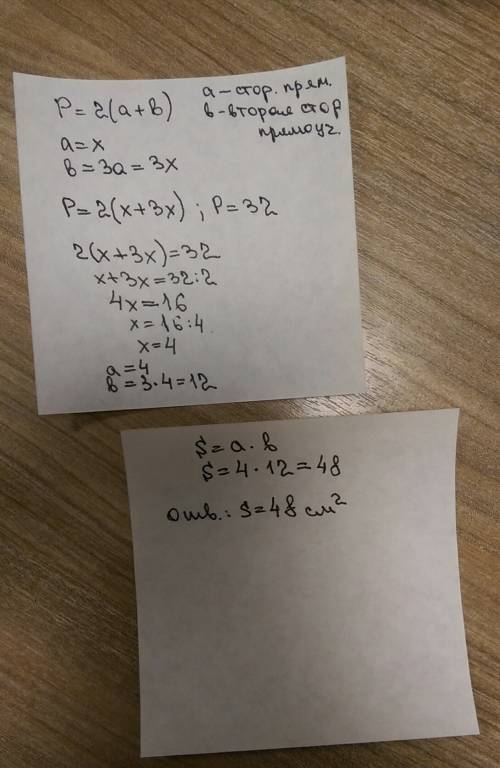 P = 2(a + b)
a – стор. прям.
b – вторая стор
прямоуг.
a = x
b = 3a = 3x
P = 2(x + 3x) ; P = 32
2(x + 3x) = 32
x + 3x = 32 : 2
4x = 16
x = 16 : 4
x = 4
a = 4
b = 3 · 4 = 12
S = a · b
S = 4 · 12 = 48
Отв.: S = 48 см²